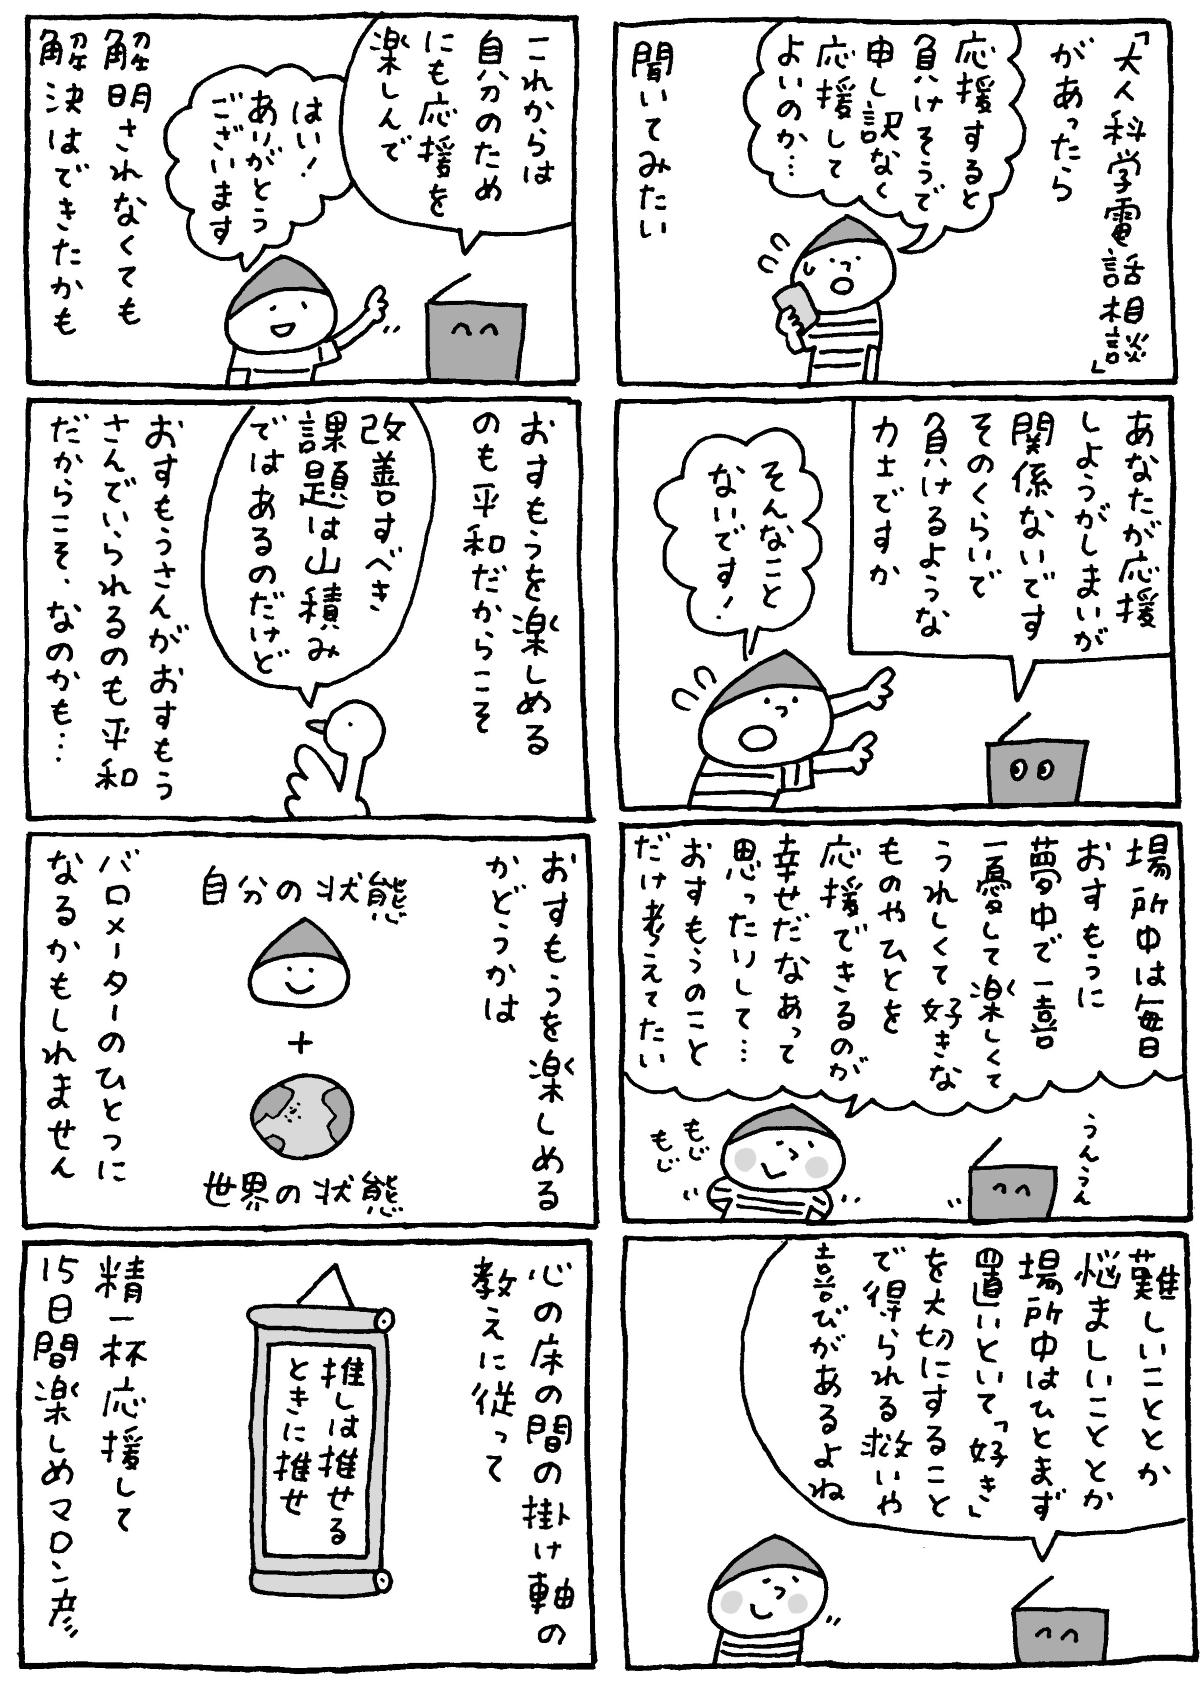 「大人科学電話相談」
があったら
応援すると
負けそうで
申し訳なく
応援して
よいのか…
聞いてみたい
あなたが応援
しようがしまいが
関係ないです
そのくらいで
負けるような
力士ですか
そんなこと
ないです!
場所中は毎日
おすもうに
夢中で一喜
一憂して楽しくて
うれしくて好きな
ものやひとを
応援できるのが
幸せだなあって
思ったりして…
おすもうのこと
だけ考えてたい
うんうん
もじ
もじ
難しいこととか
悩ましいこととか
場所中はひとまず
置いといて「好き」
を大切にすること
で得られる救いや
喜びがあるよね
これからは
自分のため
にも応援を
楽しんで
はい!
ありがとう
ございます
解明されなくても
解決はできたかも
おすもうを楽しめる
のも平和だからこそ
改善すべき
課題は山積み
ではあるのだけど
おすもうさんがおすもう
さんでいられるのも平和
だからこそ、なのかも…
おすもうを楽しめる
かどうかは
自分の状態
+
世界の状態
バロメーターのひとつに
なるかもしれません
心の床の間の掛け軸の
教えに従って
推しは推せる
ときに推せ
精一杯応援して
15日間楽しめマロン彦